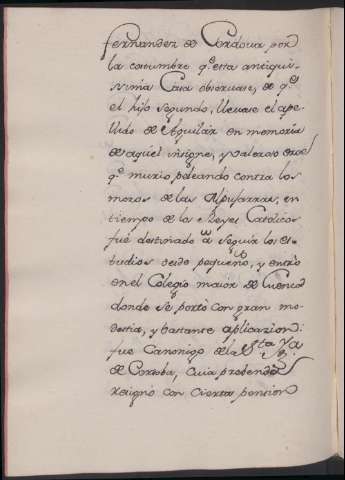 fernandez de Cordova por
la costumbre q.e esta antiquis-
sima Casa observase, de q.e
el hijo segundo, llevase el ape-
llido de Aguilar en memoria
de aquel insigne, y valeroso
q.e murio, peleando contra los
moros de las Alpujarras, en
tiempo de los Reyes Catolicos
fué destinado a seguir los es-
tudios desde pequeño, y entró
en el Colegio maior de Cuenca
donde se portó con gran mo-
destia, y bastante aplicazion:
fue Canonigo de la S.ta Yg.a
de Cordoba, cuia prebenda
resignó con cierta pension